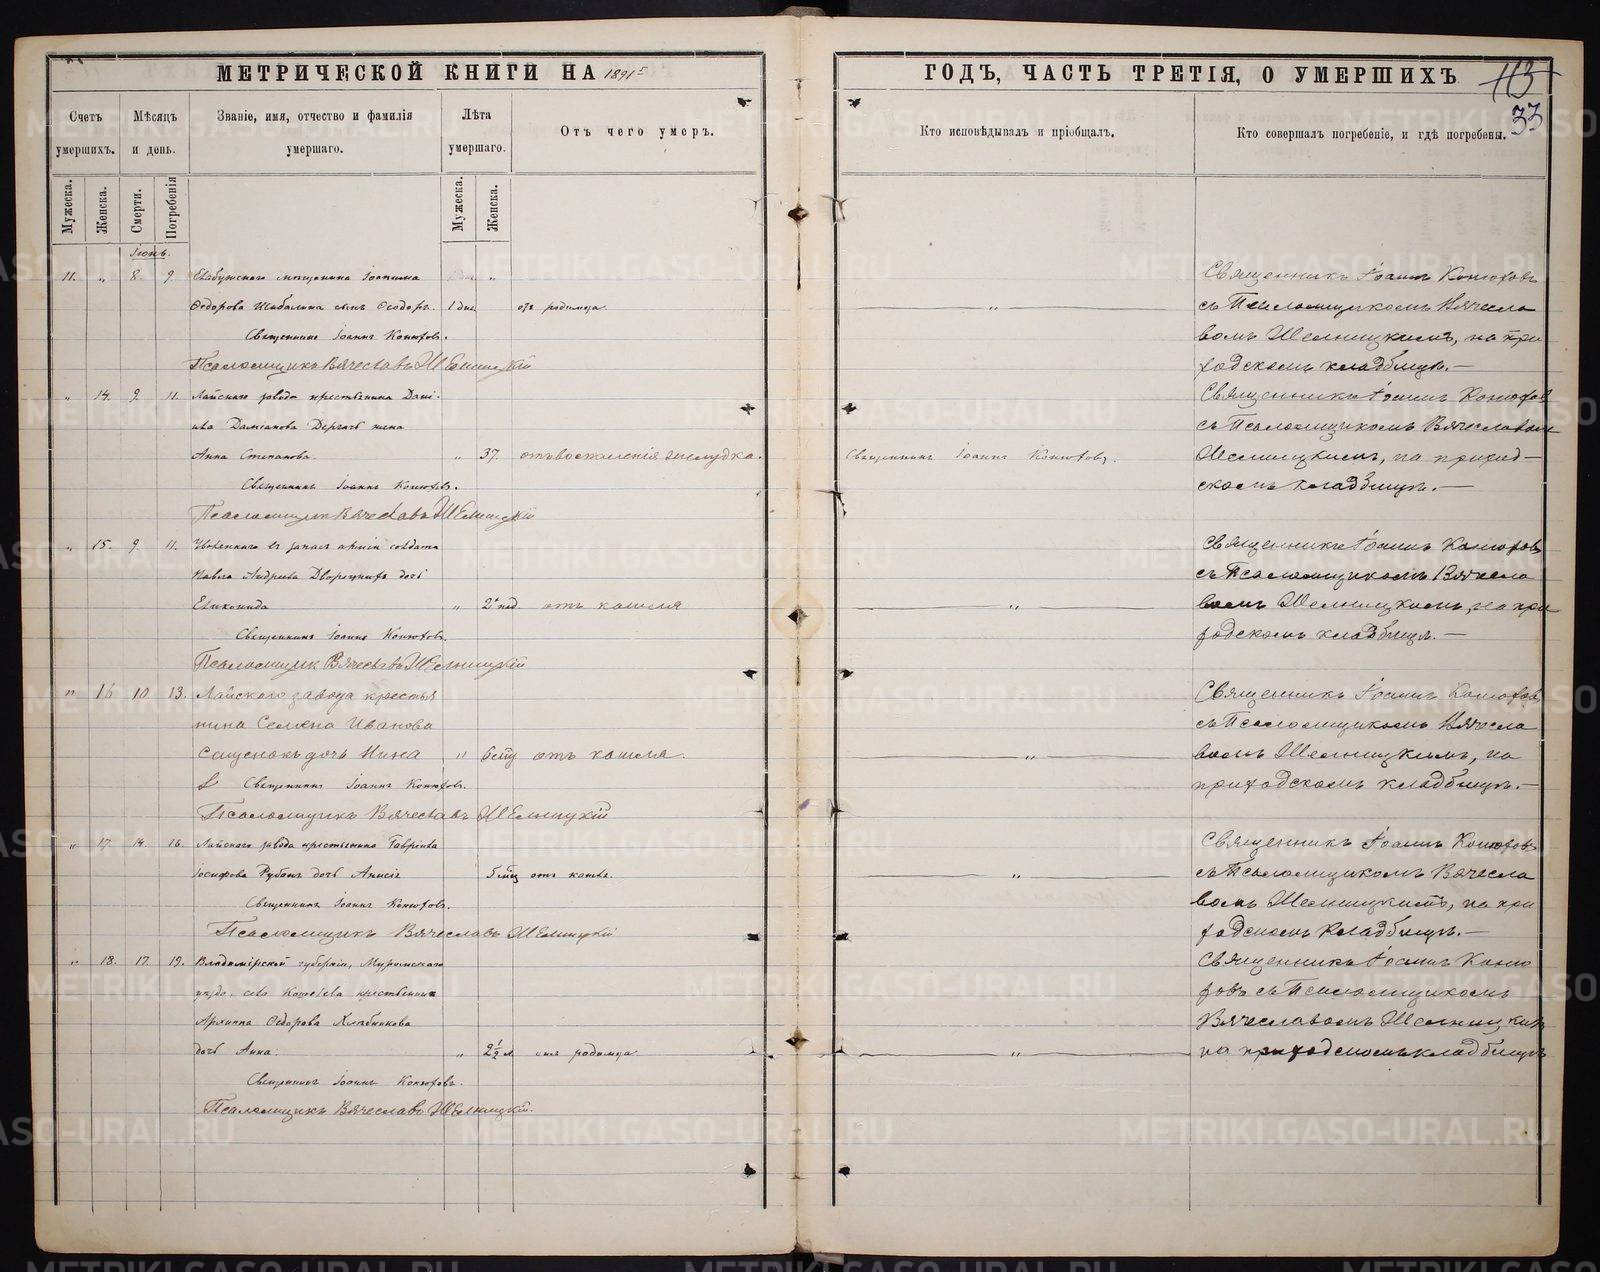 МЕТРИЧЕСКОЙ КНИГИ НА 1891 г
ГОДЪ, ЧАСТЬ ТРЕТІЯ, О УМЕРШИХЪ
113
33
Счетъ умершихъ.
Мѣсяцъ и день.
Званіе, имя, отчество и фамилія умершаго.
Лѣта умершаго.
Отъ чего умеръ.
Кто исповѣдывалъ и пріобщалъ.
Кто совершалъ погребеніе, и гдѣ погребены.
Мужеска.
Женска.
Смерти.
Погребенія
Мужеска.
Женска.
Іюнь.
11. „ 8. 9. Елабужскаго мѣщанина Іоакима „ Священникъ Іоаннъ Конюховъ
Ѳедорова Шабалина сынъ Ѳеодоръ. 1 дня отъ родимца. „ съ Псаломщикомъ Вячесла
Священникъ Іоаннъ Конюховъ. вомъ Шелницкимъ, на при
Псаломщикъ Вячеславъ Шелницкій ходскомъ кладбищѣ.—
„ 14. 9. 11. Лайскаго завода крестьянина Дані- Священникъ Іоаннъ Конюховъ
ила Даміанова жена съ Псаломщикомъ Вячеславомъ
Анна Степанова. „ 37. отъ воспаленія желудка. Священникъ Іоаннъ Конюховъ. Шелницкимъ, на приход—
Священникъ Іоаннъ Конюховъ. скомъ кладбищѣ.—
Псаломщикъ Вячеславъ Шелницкій
„ 15. 9. 11. въ запасъ арміи солдата Священникъ Іоаннъ Конюховъ
Павла Андреева дочь съ Псаломщикомъ Вячесла
Евликонида „ 2 нед. отъ кашля „ вомъ Шелницкимъ, на при
Священникъ Іоаннъ Конюховъ. ходскомъ кладбищѣ.—
Псаломщикъ Вячеславъ Шелницкій
„ 16 10. 13. Лайскаго завода крестья Священникъ Іоаннъ Конюховъ
нина Семена Иванова съ Псаломщикомъ Вячесла
Сащенокъ дочь Нина „ 6 мѣц отъ кашля. „ вомъ Шелницкимъ, на
Священникъ Іоаннъ Конюховъ. приходскомъ кладбищѣ.—
Псаломщикъ Вячеславъ Шелницкій
„ 17. 14. 16. Лайскаго завода крестьянина Гавріила Священникъ Іоаннъ Конюховъ
Іосифова дочь Анисія 5 мѣц отъ кашля. „ съ Псаломщикомъ Вячесла
Священникъ Іоаннъ Конюховъ. вомъ Шелницкимъ, на при
Псаломщикъ Вячеславъ Шелницкій ходскомъ кладбищѣ.—
„ 18. 17. 19. Владимірской губерніи, Муромскаго Священникъ Іоаннъ Коню
уѣзда, села крестьянина ховъ съ Псаломщикомъ
Архиппа Ѳедорова Хлѣбникова Вячеславомъ Шелницкимъ
дочь Анна. „ 2½ л. отъ родимца. „ на приходскомъ кладбищѣ
Священникъ Іоаннъ Конюховъ.
Псаломщикъ Вячеславъ Шелницкій.
METRIKI.GASO-URAL.RU